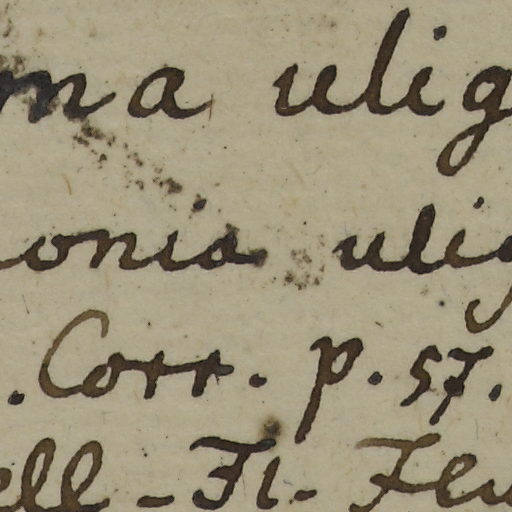 ma ulig
onia ulig
. Corr. p. 57.
ell - Fl -